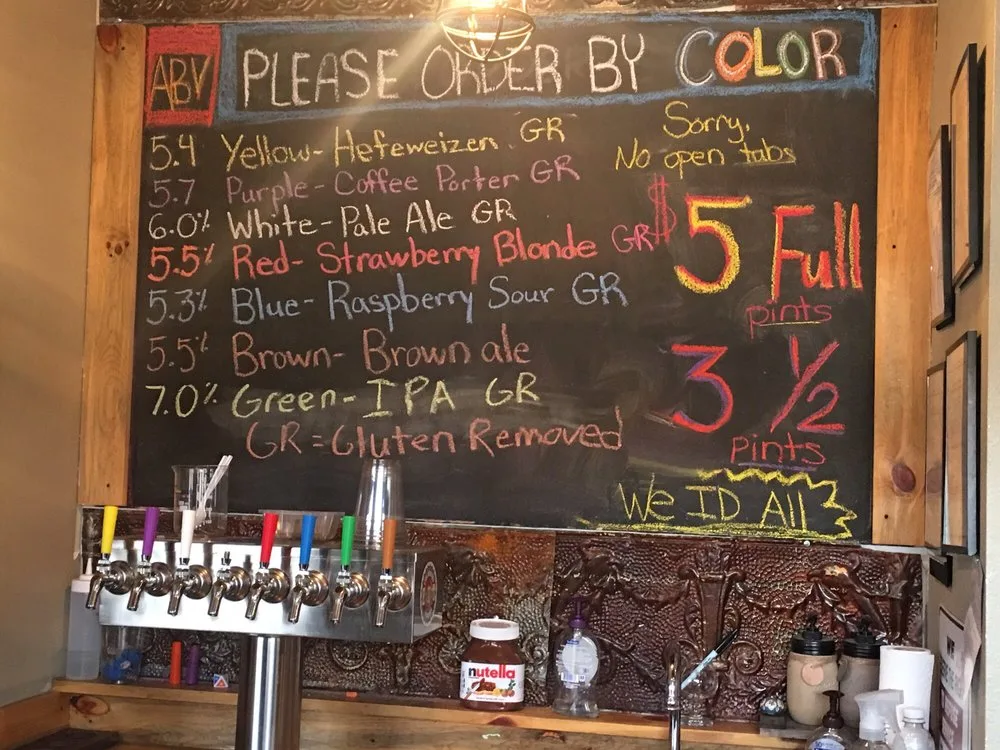 ABV PLEASE ORDER BY COLOR
5.4 Yellow- Hefeweizen GR
5.7 Purple-Coffee Porter GR
6.0% White-Pale Ale GR
5.5% Red- Strawberry Blonde GR
5.3% Blue- Raspberry Sour GR
5.5% Brown- Brown ale
7.0% Green-IPA GR
GR=Gluten Removed
Sorry,
No open tabs
$5 Full
pints
3 1/2
pints
We ID All
nutella